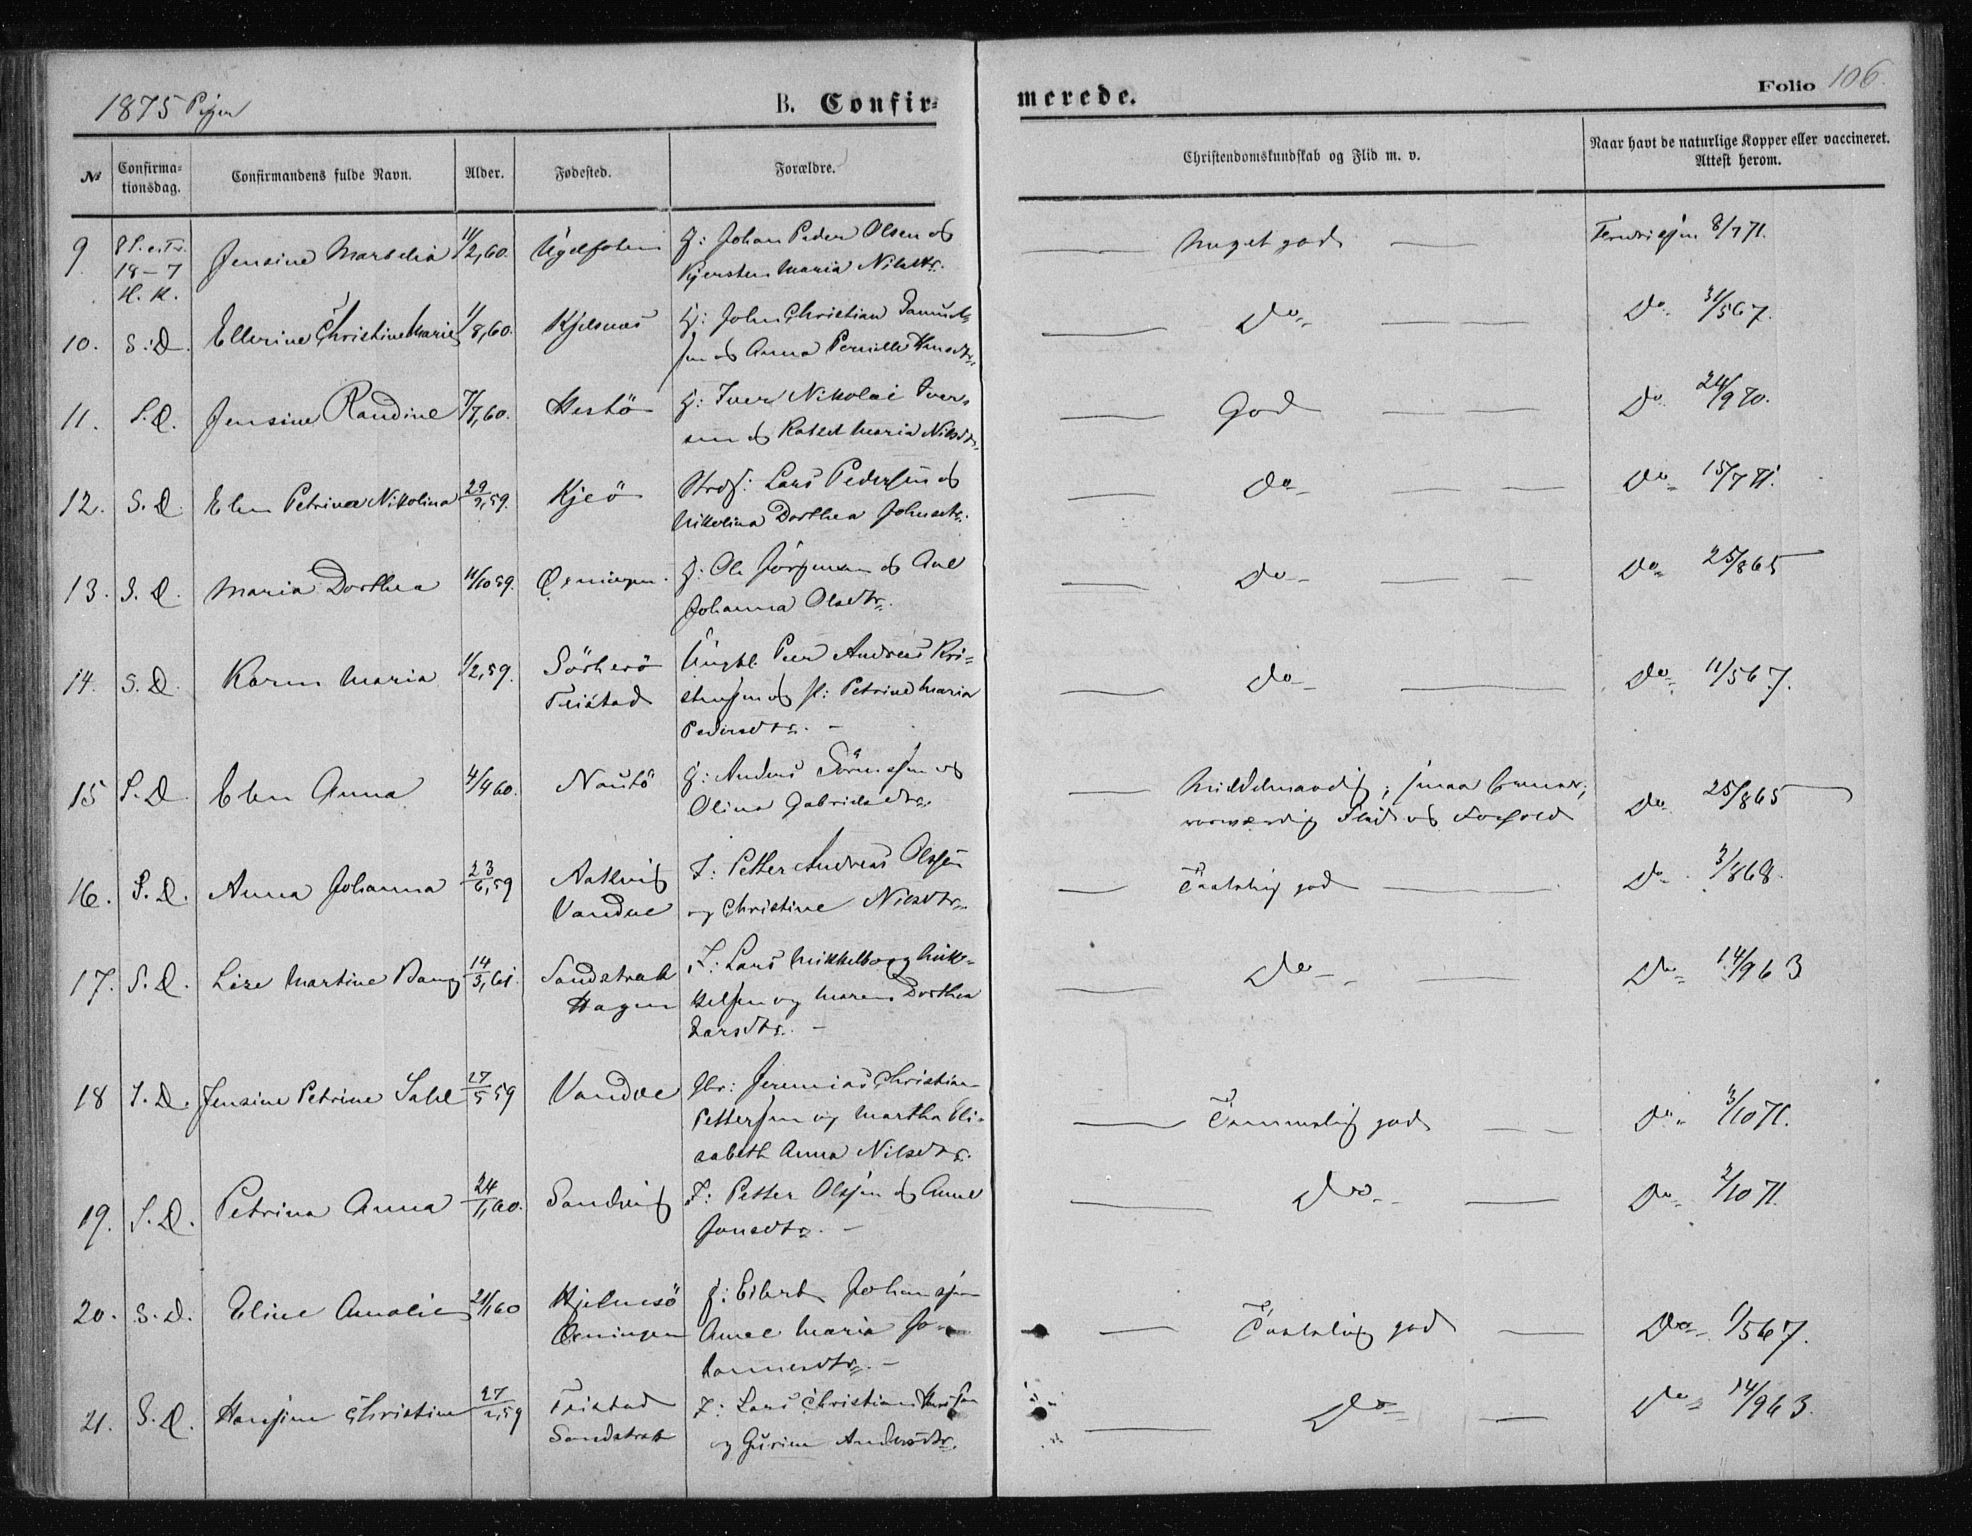 1875 Piger
B. Confir-
merede.
Folio 106.
No
Confirma-
tionsdag.
Confirmandens fulde Navn.
Alder.
Fødested.
Forældre.
Christendomskundskab og Flid m. v.
Naar havt de naturlige Kopper eller vaccineret.
Attest herom.
9 8 S. e. Tr. Jensine 11/2,60. G: Johan Peder Olsen og Meget god 8/7 71.
18-7 Kjersten Maria Nilsdtr.
H. K.
10. S. D. Ellerine Christine Marie 1/8,60. Kjelsnæs G: John Christian Samuel- Do Do 31/5 67.
sen og Anna Pernille Hansdtr.
11. S. D. Jensine Randine 7/7,60. Hestö G: Iver Nikolai Iver- God Do 24/9 70.
sen og Maria Nilsdtr.
12. S. D. Elen Petrine Nikolina 29/9,59. Kjeö Lars Pedersen og Do Do 15/7 71.
Nikolina Dorthea Johnsdtr.
13. S. D. Maria Dorthea 11/10 59. G: Ole Jørgensen og Ane Do Do 25/8 65
Johanna Olsdtr.
14. S. D. Karen Maria 1/2,59. Sörherö Ungkl. Peer Andreas Kri- Do Do 11/5 67.
Teistad stensen og p: Petrine Maria
Pedersdtr. -
15 S. D. Elen Anna 4/4 60. Nautö G: Anders Sörensen og Middelmaadig, smaa Evner, Do 25/8 65
Olina Gabrielsdtr. Flid og Forhold
16. S. D. Anna Johanna 23/6,59 Aakvig I: Petter Andreas Olssen Taalelig god Do 3/8 68.
Vandve og Christine Nilsdtr.
17. S. D. Lise Martine Bang 14/3,61 Sandstrak I: Lars Mikkelborg Mik- Do Do 14/9 63
Hagen kelsen og Maren Dorthea
Larsdtr. -
18 S. D. Jensine Petrine Sahl 27/5 59 Vandve Jeremias Christian
Pettersen og Martha Eli- Temmelig god Do 3/10 71.
sabeth Anna Nilsdtr.
19. S. D. Petrina Anna 24/1,60. Sandvig I: Petter Olssen og Anne Do Do 2/10 71.
Jonsdtr. -
20. S. D. Eline Amalie 21/1 60 Hjelmsö G: Eilert Johansen
Anne Maria Jo- Taalelig god Do 1/5 67.
hannesdtr. -
21. S. D. Hansine Christine 27/2,59 Teistad I: Lars Christian Hansen Do Do 14/9 63.
Sandstrak og Gurine Andersdtr.